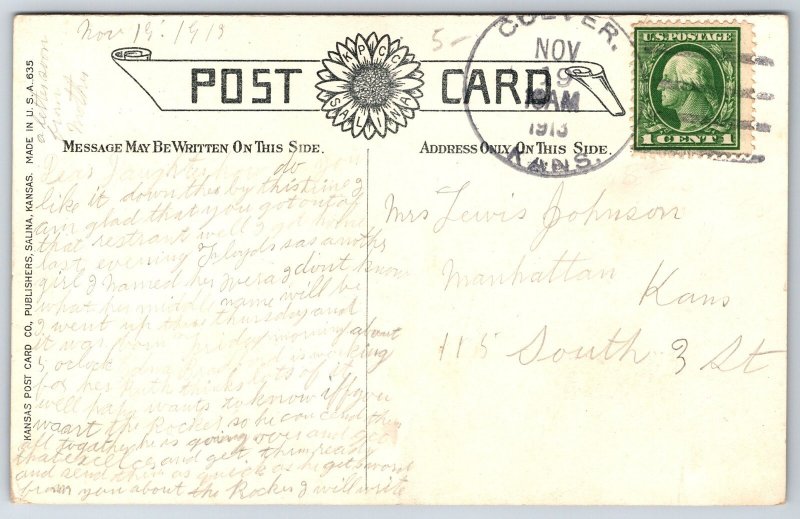 Nov 19' 1913
5-
CULVER.
NOV
9
10AM
1913
KANS.
U.S. POSTAGE
1 CENT 1
POST CARD
KPCC
SALINA
MESSAGE MAY BE WRITTEN ON THIS SIDE.
ADDRESS ONLY ON THIS SIDE.
KANSAS POST CARD CO., PUBLISHERS, SALINA, KANSAS. MADE IN U.S.A. 635
from
Mother
Dear Daughter how do you
like it down there by this time I
am glad that you got out of
that restrant well I got home
last evening Floyds has another
girl I named her I dont know
what her middle name will be
I went up there thursday and
it was born friday morning about
5 oclock
for her Ruth thinks lots of it
well papa wants to know if you
waant the Rocker so he can send them
all togather he is going over and get
that and get them ready
and send them as quick as he gets word
from you about the Rocker I will write
Mrs Lewis Johnson
Manhattan
Kans
115 South 3 St